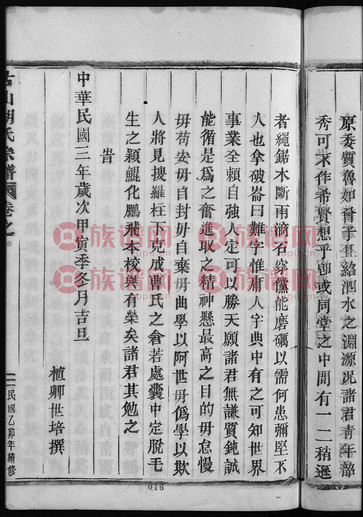 原委質魯如曾子且紹泗水之淵源況諸君青年韶
秀可不作希賢想乎卽或同堂之中間有一二稍遜
者繩鋸木斷雨滴石穿儻能磨礪以需何患彌堅不
人也拿破崙曰難字惟庸人字典中有之可知世界
事業全賴自強人定可以勝天願諸君無謙質鈍誠
能循是爲之奮進取之精神懸最高之目的毋怠慢
毋苟安毋自封毋自棄毋曲學以阿世毋僞學以欺
人將見搜羅枉下克成曹氏之倉若處囊中定脫毛
生之穎鯤化鵬飛本校與有榮矣諸君其勉之
旹
中華民國三年歲次甲寅季冬月吉旦
植卿世培撰
古山胡氏宗譜 卷之
民國乙卯年續修
016
族譜网